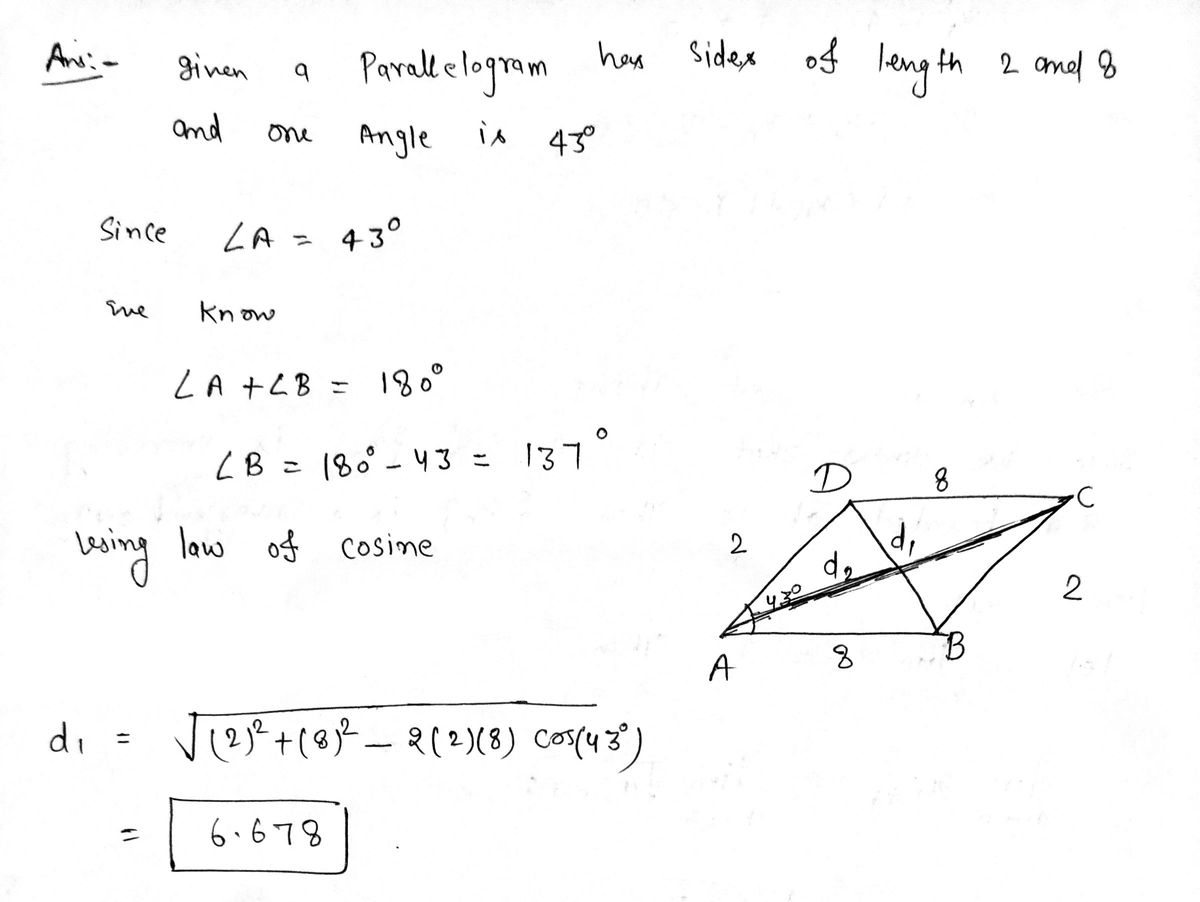 Ans:- given a Parallelogram has sides of length 2 and 8
and one Angle is 43°
Since ∠A = 43°
we know
∠A + ∠B = 180°
∠B = 180° - 43 = 137°
using law of cosine
D 8 C
2 d₁
d₂
43° 2
A 8 B
d₁ = √(2)² + (8)² - 2(2)(8) cos(43°)
= 6.678